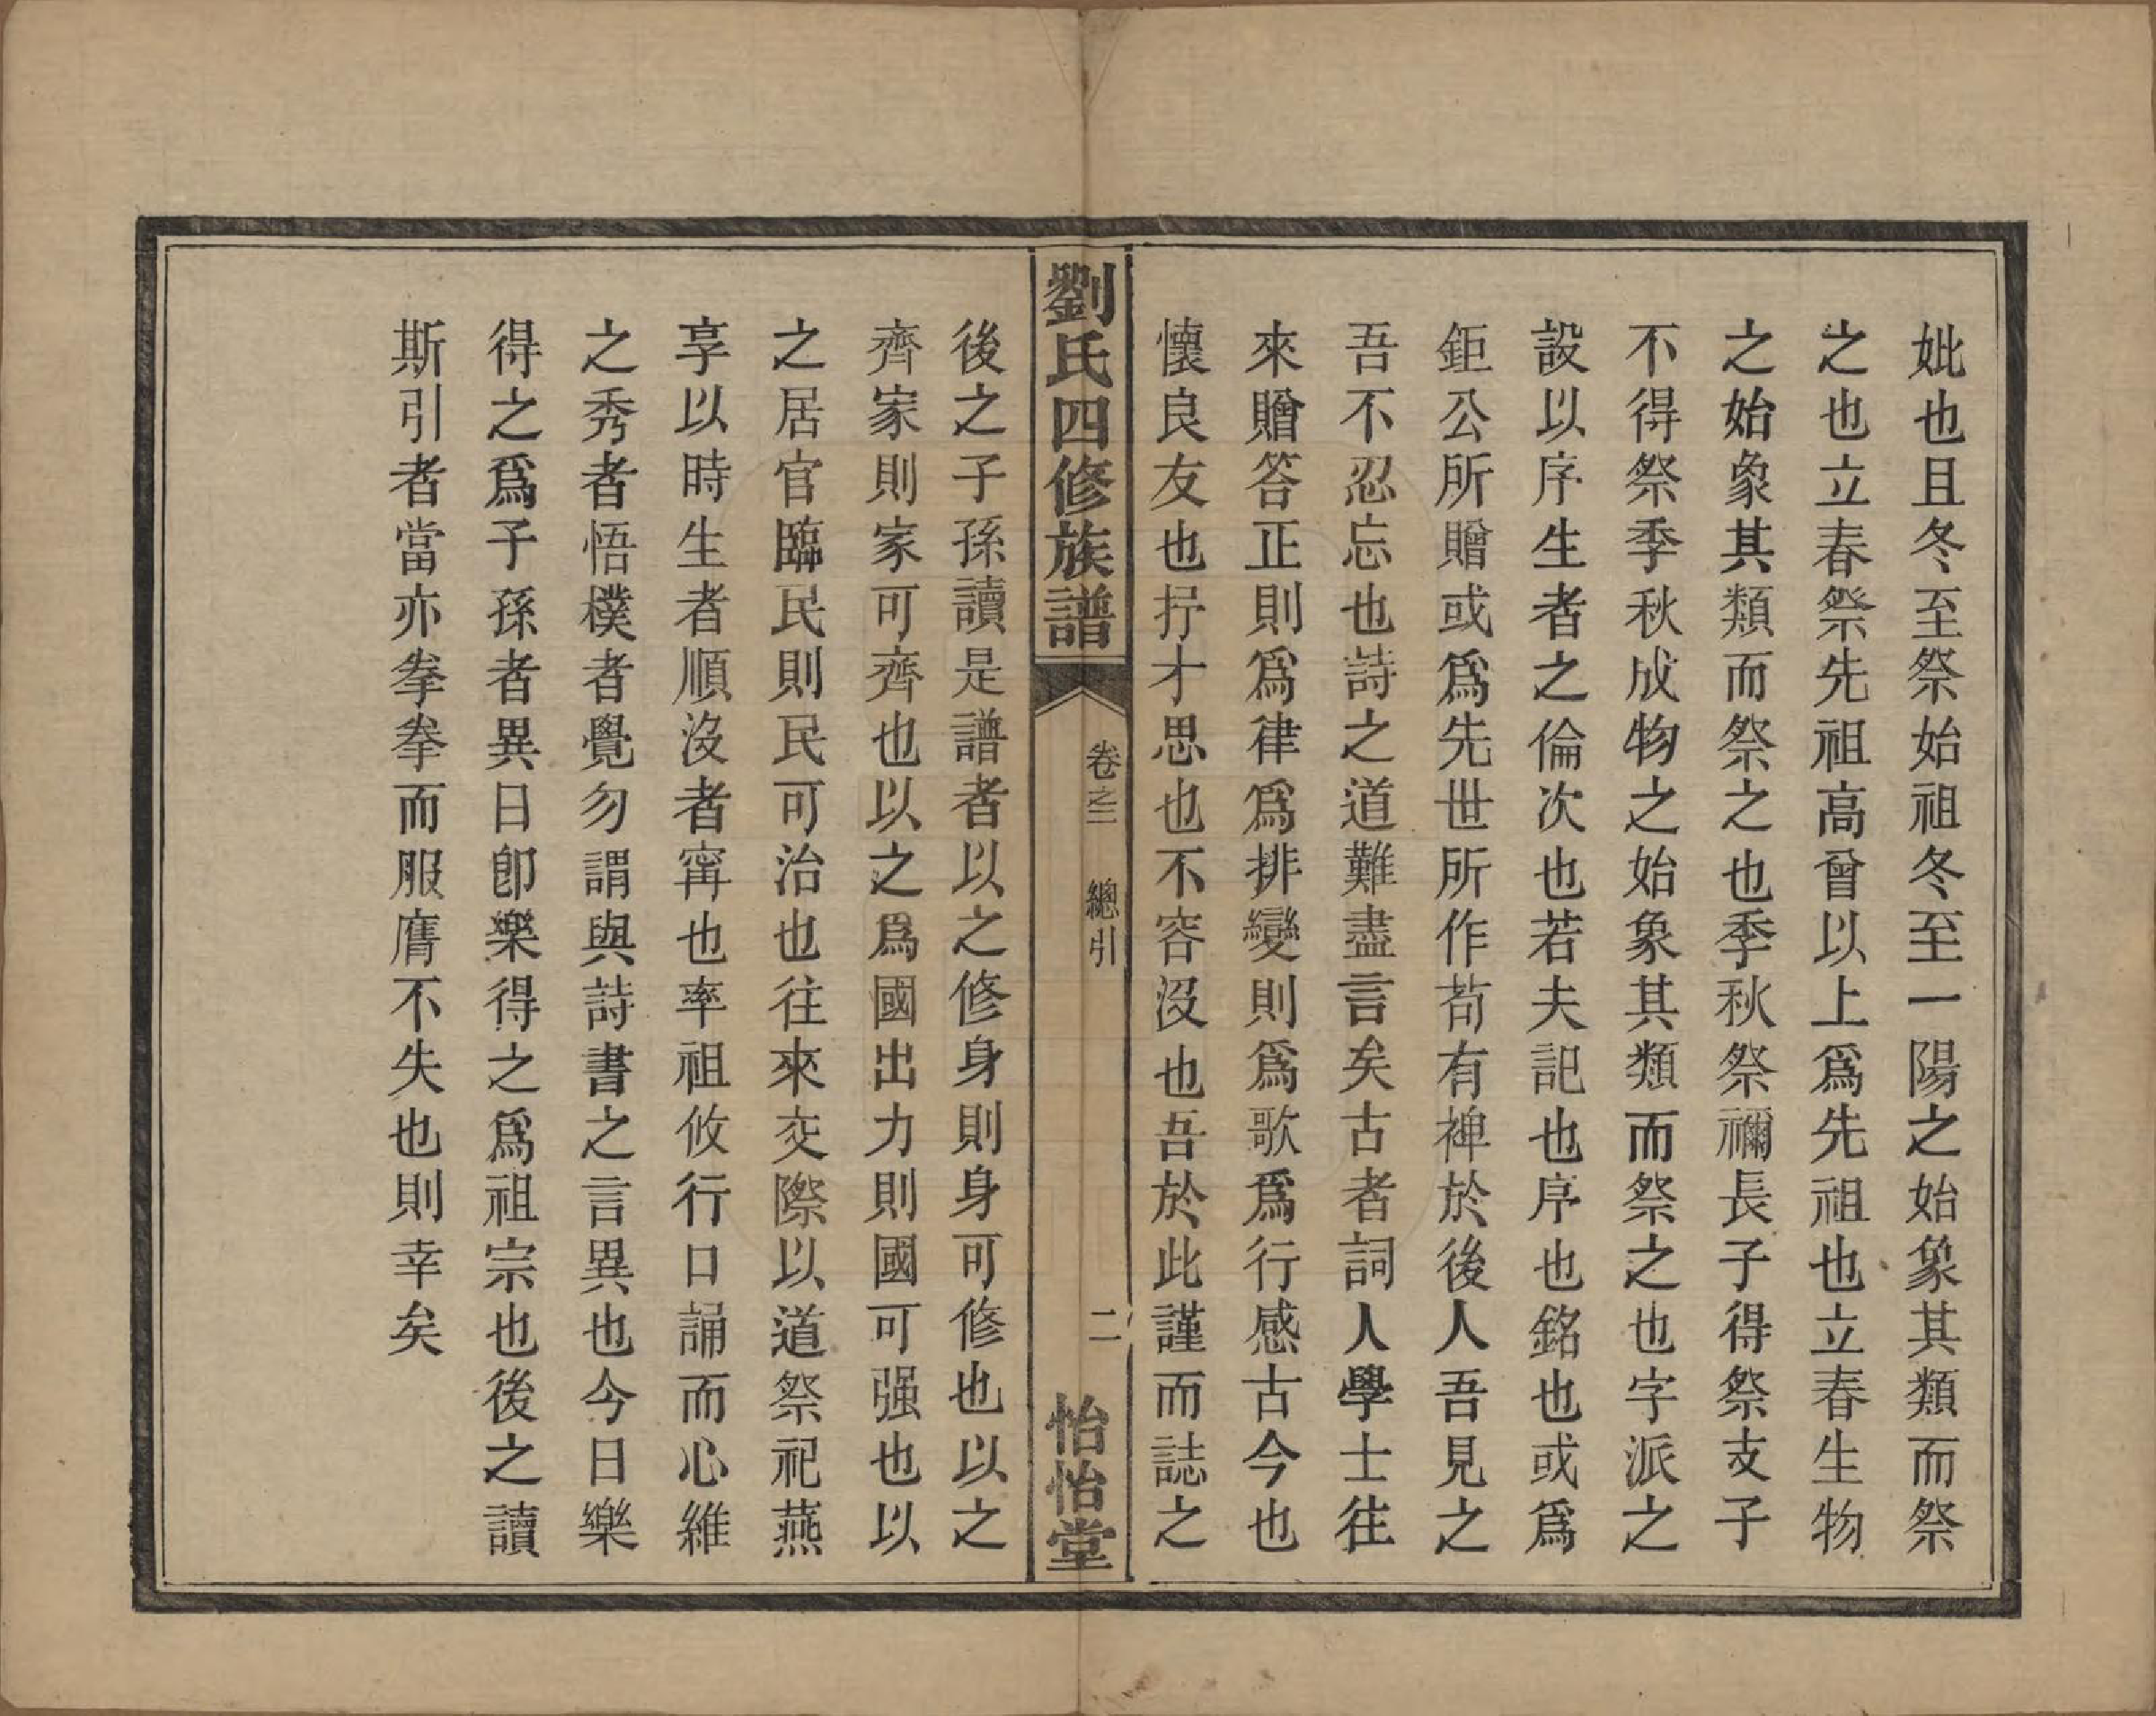 妣也且冬至祭始祖冬至一陽之始象其類而祭
之也立春祭先祖高曾以上爲先祖也立春生物
之始象其類而祭之也季秋祭禰長子得祭支子
不得祭季秋成物之始象其類而祭之也字派之
設以序生者之倫次也若夫記也序也銘也或爲
鉅公所贈或爲先世所作苟有裨於後人吾見之
吾不忍忘也詩之道難盡言矣古者詞人學士往
來贈答正則爲律爲排變則爲歌爲行感古今也
懷良友也抒才思也不容沒也吾於此謹而誌之
劉氏四修族譜 卷之三 總引 二 怡怡堂
後之子孫讀是譜者以之修身則身可修也以之
齊家則家可齊也以之爲國出力則國可强也以
之居官臨民則民可治也往來交際以道祭祀燕
享以時生者順沒者甯也率祖攸行口誦而心維
之秀者悟樸者覺勿謂與詩書之言異也今日樂
得之爲子孫者異日卽樂得之爲祖宗也後之讀
斯引者當亦拳拳而服膺不失也則幸矣